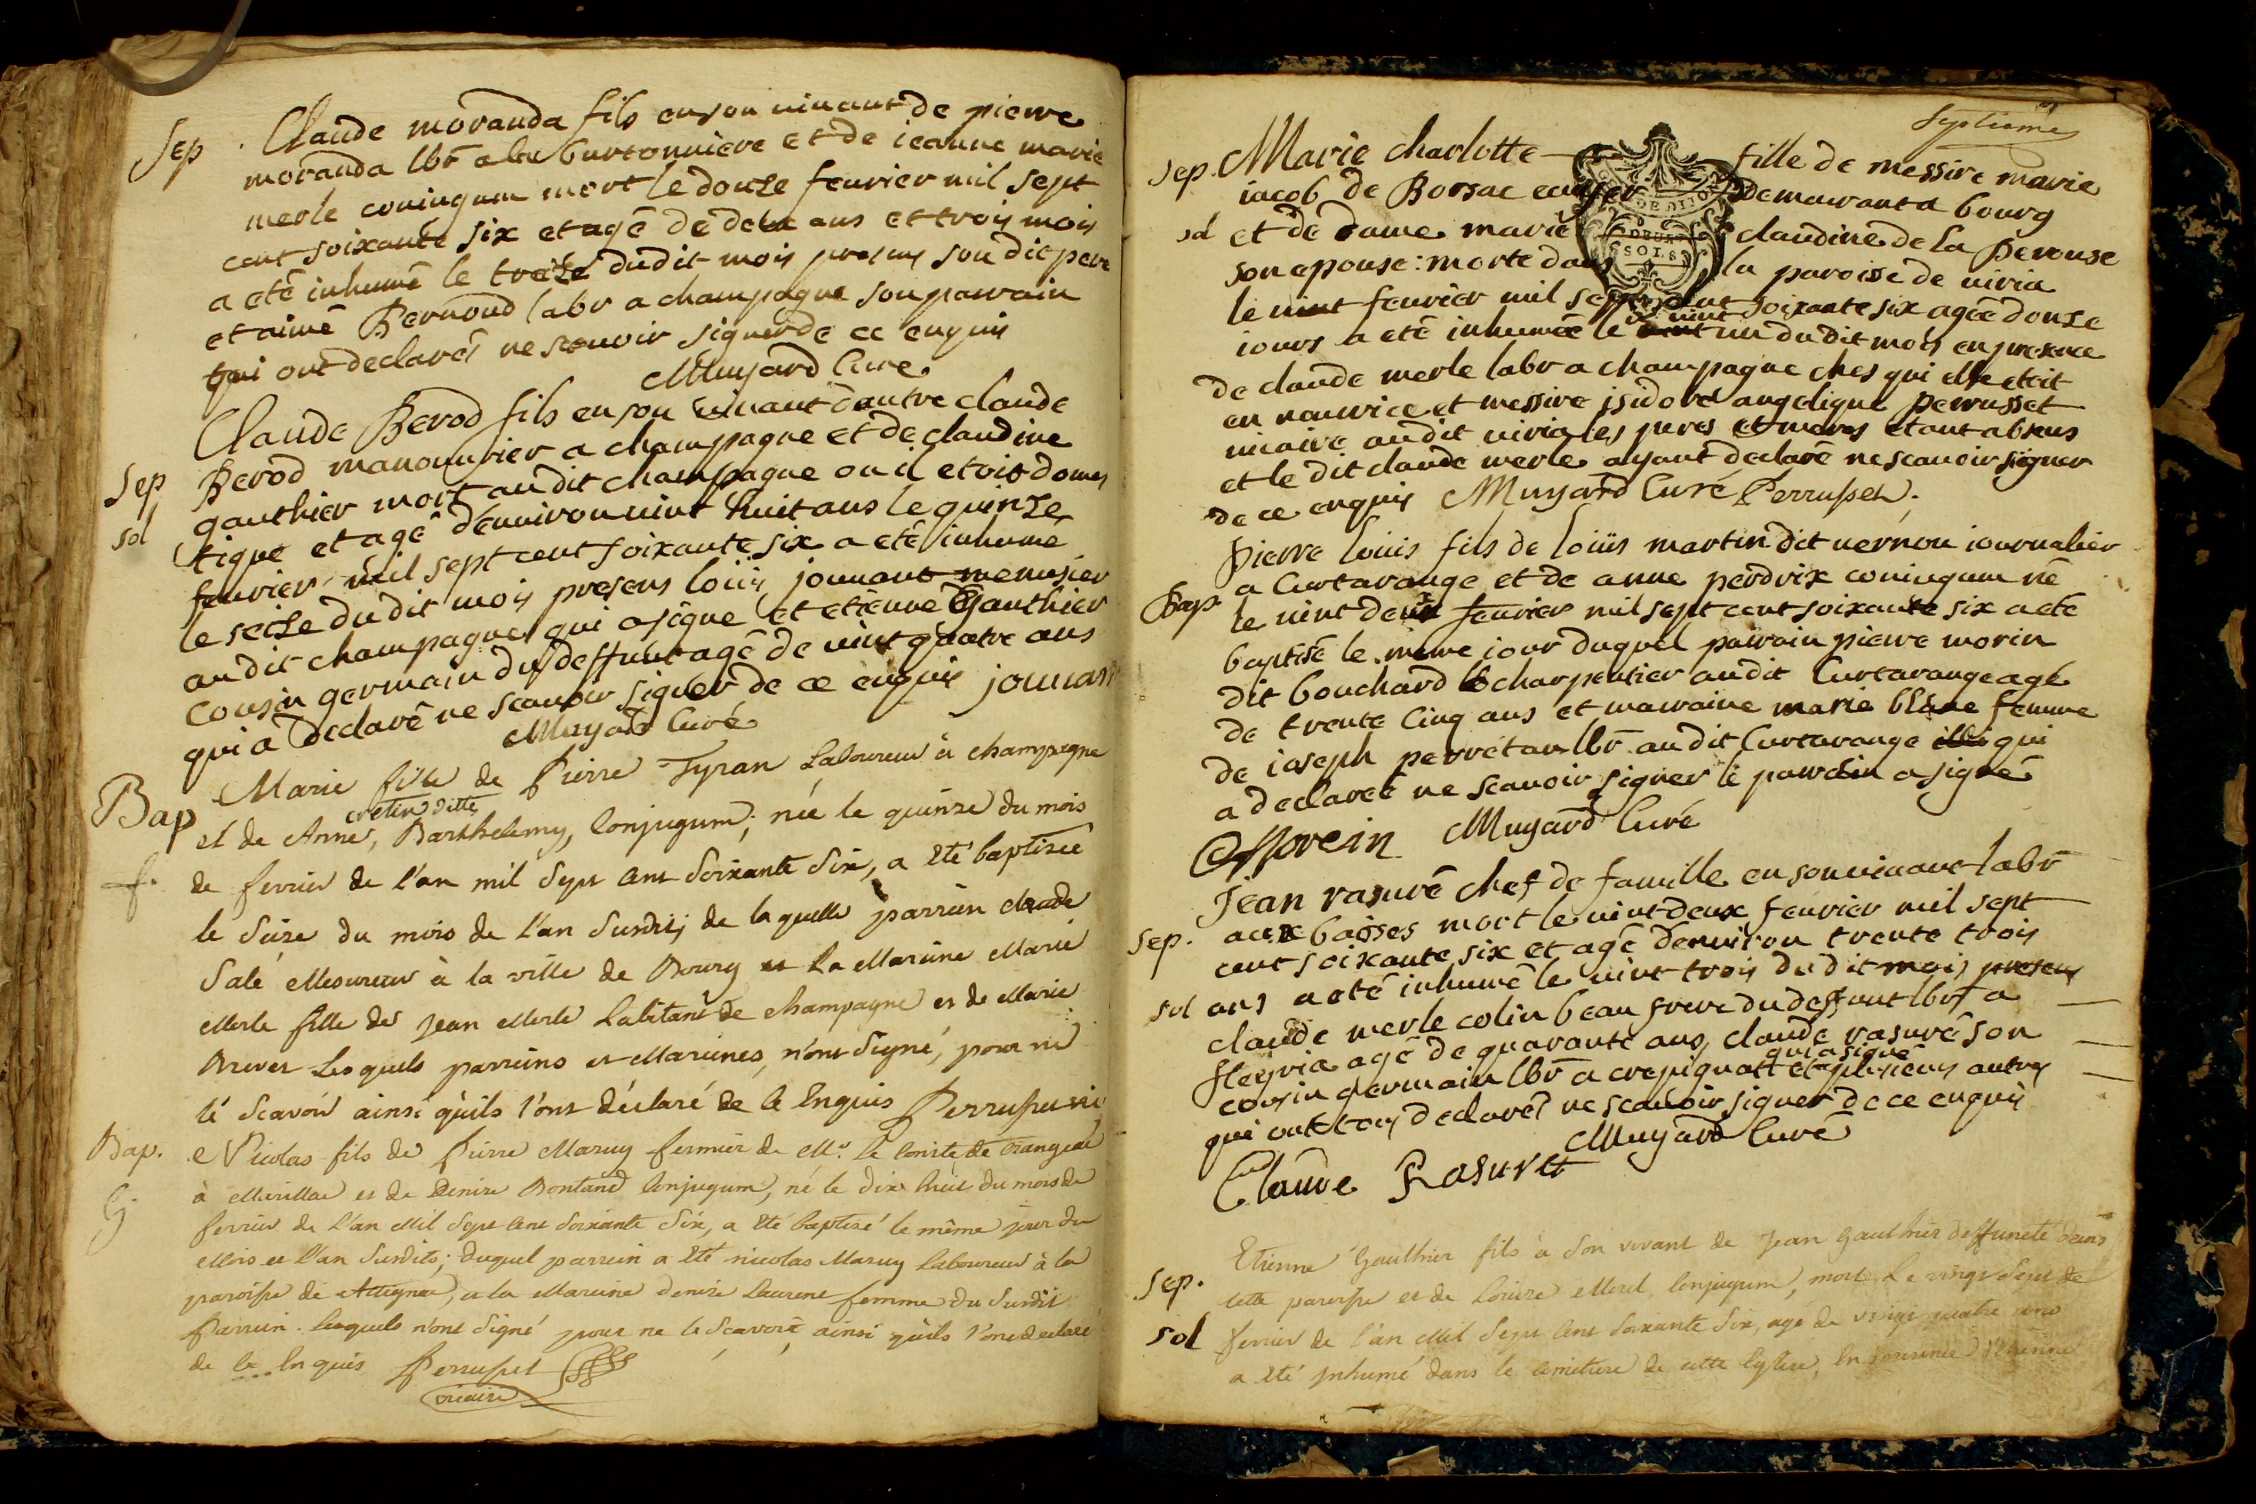 Sep
Claude moranda fils en son vivant de pierre
moranda lbr a la burtonniere et de ieanne marie
merle coniugum mort le douze feurier mil sept
cent soixante six et agé de deux ans et trois mois
a eté inhumé le treize dudit mois presens son dit pere
et aimé Bernoud labr a champagne son parrain
qui ont declarés ne scauoir signer de ce enquis
Muyard Curé
Sep
sol
Claude Berod fils en son viuant d'autre claude
Berod manouurier a champagne et de claudine
gauthier mort audit champagne ou il etoit domes
tique et agé d'enuiron vint huit ans le quinze
feurier mil sept cent soixante six a eté inhumé
le seize dudit mois presens loüis jouuant menusier
audit champagne qui a signé et etienne Gauthier
cousin germain du deffunt agé de vint quatre ans
qui a declaré ne scauoir signer de ce enquis jouuan
Muyard Curé
Bap
f.
Marie fille de Pierre Tyran Laboureur à champagne
cretin ditte
et de Anne, Barthelemy, Conjugum; née le quinze du mois
de fevrier de l'an mil Sept Cent Soixante Six, a été baptizée
le Seize du mois de l'an Susdit; de laquelle parrain claude
Salé Mesureur à la ville de Bourg et La Mareine Marie
Merle fille de Jean Merle habitant de champagne et de Marie
Brevet Lesquels parreins et Mareines, n'ont Signé, pour ne
lé Scavoir ainsi qu'ils l'ont déclaré de ce Enquis Perrusset vic
Bap.
G
Nicolas fils de Pierre Maruy fermier de Mr. le Comte de
à Marillac et de Denise Bontand Conjugum, né le dix huit du mois de
fevrier de L'an Mil Sept Cent Soixante Six, a été baptizé le même jour du
Mois et l'an Susdits; duquel parrein a été nicolas Maruy Laboureur à la
paroisse de Attignat, et la Mareine denise Laurent femme du Susdit
Parrein. Lesquels n'ont Signé pour ne le Scavoir ainsi qu'ils l'ont declaré
de ce Enquis Perrusset
vicaire
Septieme
Sep.
sol
Marie charlotte fille de messire marie
iacob de Borsac ecuyer demeurant a bourg
et de dame marie claudine de la Perouse
son epouse: morte dans la paroisse de viria
le vint feurier mil sept cent soixante six agée douze
iours a eté inhumée le vint un dudit mois en presence
de claude merle labr a champagne ches qui elle etoit
en nourrice et messire isidore angelique perrusset
vicaire audit viria les peres et meres etant absens
et le dit claude merle ayant declaré ne scauoir signer
de ce enquis Muyard Curé Perrusset.
Bap
pierre loüis fils de loüis martin dit uernou iournalier
a Curtarange et de anne perdrix coniugum né
le vint deux feurier mil sept cent soixante six a eté
baptisé le meme iour duquel pairain pierre morin
dit bouchard charpentier audit Curtarange agé
de trente cinq ans et maraine marie blanc femme
de ioseph perretan lbr audit Curtarange qui
a declaree ne scauoir signer le parrain a signé
Morein Muyard Curé
Sep.
sol
Jean rasuré chef de famille en son viuant labr
aux baisses mort le vint deux feurier mil sept
cent soixante six et agé d'enuiron trente trois
ans a eté inhumé le vint trois dudit mois presens
claude merle colin beau frere du deffunt lbr a
fleyria agé de quarante ans, claude rasuré son
qui a signé
cousin germain lbr a crepignat et plusieurs autres
qui ont tous declarés ne scauoir signer de ce enquis
Muyard Curé
Claude Rasuret
Sep.
sol
Etienne Gaulthier fils à Son vivant de Jean Gaulthier deffuncté dans
cette paroisse et de Louise Morel Conjugum, mort Le vingt Sept de
fevrier de l'an Mil Sept Cent Soixante Six, agé de vingt quatre ans
a été Inhumé dans le Cimetiere de cette Eglise, En presence d'Etienne